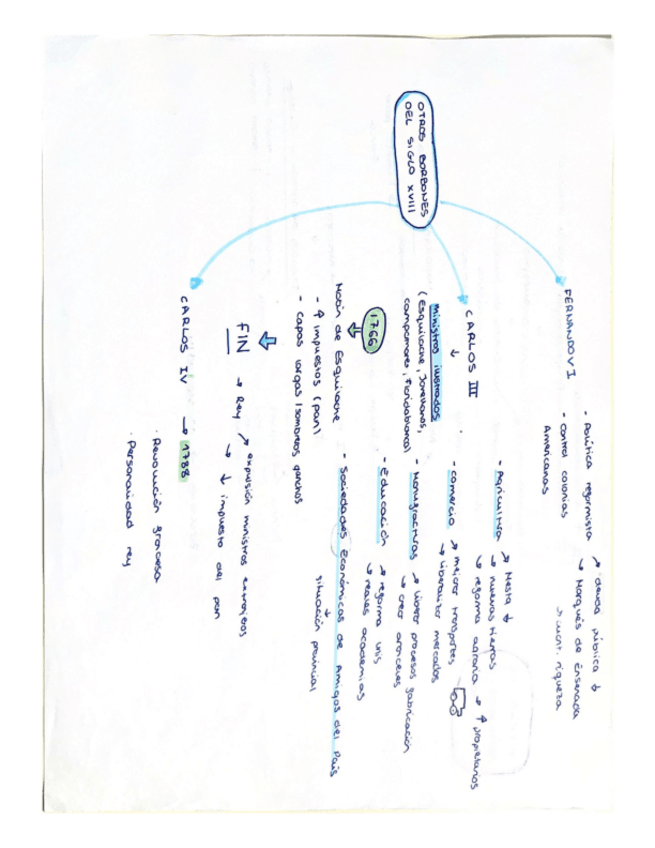 OTROS BORBONES
DEL SIGLO XVIII
FERNANDO VI
- Política reformista
↗ deuda pública ↓
↘ Marqués de Ensenada
- Control colonias
Americanas
CARLOS III
↓
ministros ilustrados
(Esquilache, Jovellanos,
Campomanes, Floridablanca)
- Agricultura
↗ Mesta ↓
→ nuevas tierras
↘ reforma agraria → ↑ propietarios
- comercio
↗ mejorar transportes
↘ liberalizar mercados
- Manufacturas
↗ liberar procesos fabricación
↘ crear aranceles
- Educación
↗ reforma unis
↘ reales academias
- Sociedades Económicas de Amigos del País
↓
situación provincial
1766
Motín de Esquilache
- ↑ impuestos (pan)
- Capas largas / sombreros ganchos
FIN → Rey
↗ expulsión ministros extranjeros
↘ ↓ impuesto del pan
CARLOS IV → 1788
· Revolución francesa
· Personalidad rey